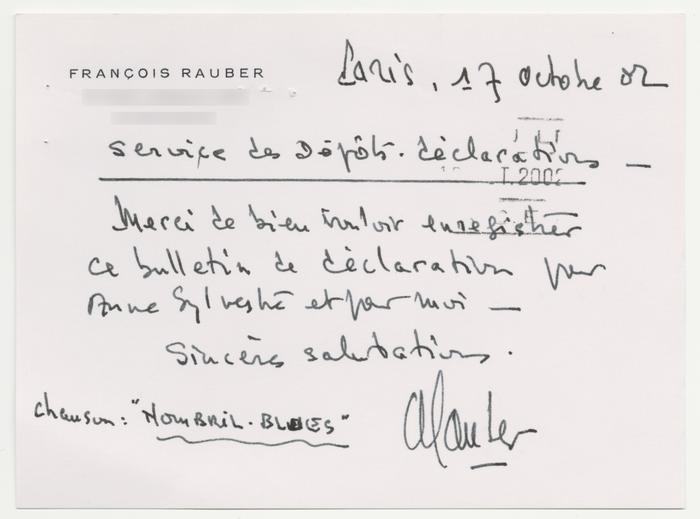 FRANÇOIS RAUBER
Paris, 17 octobre 02
Service des Dépôts. déclarations —
T.2002
Merci de bien vouloir enregistrer
ce bulletin de déclaration pour
Anne Sylvestre et pour moi —
Sincères salutations.
chanson: "NOMBRIL-BLUES"
Rauber